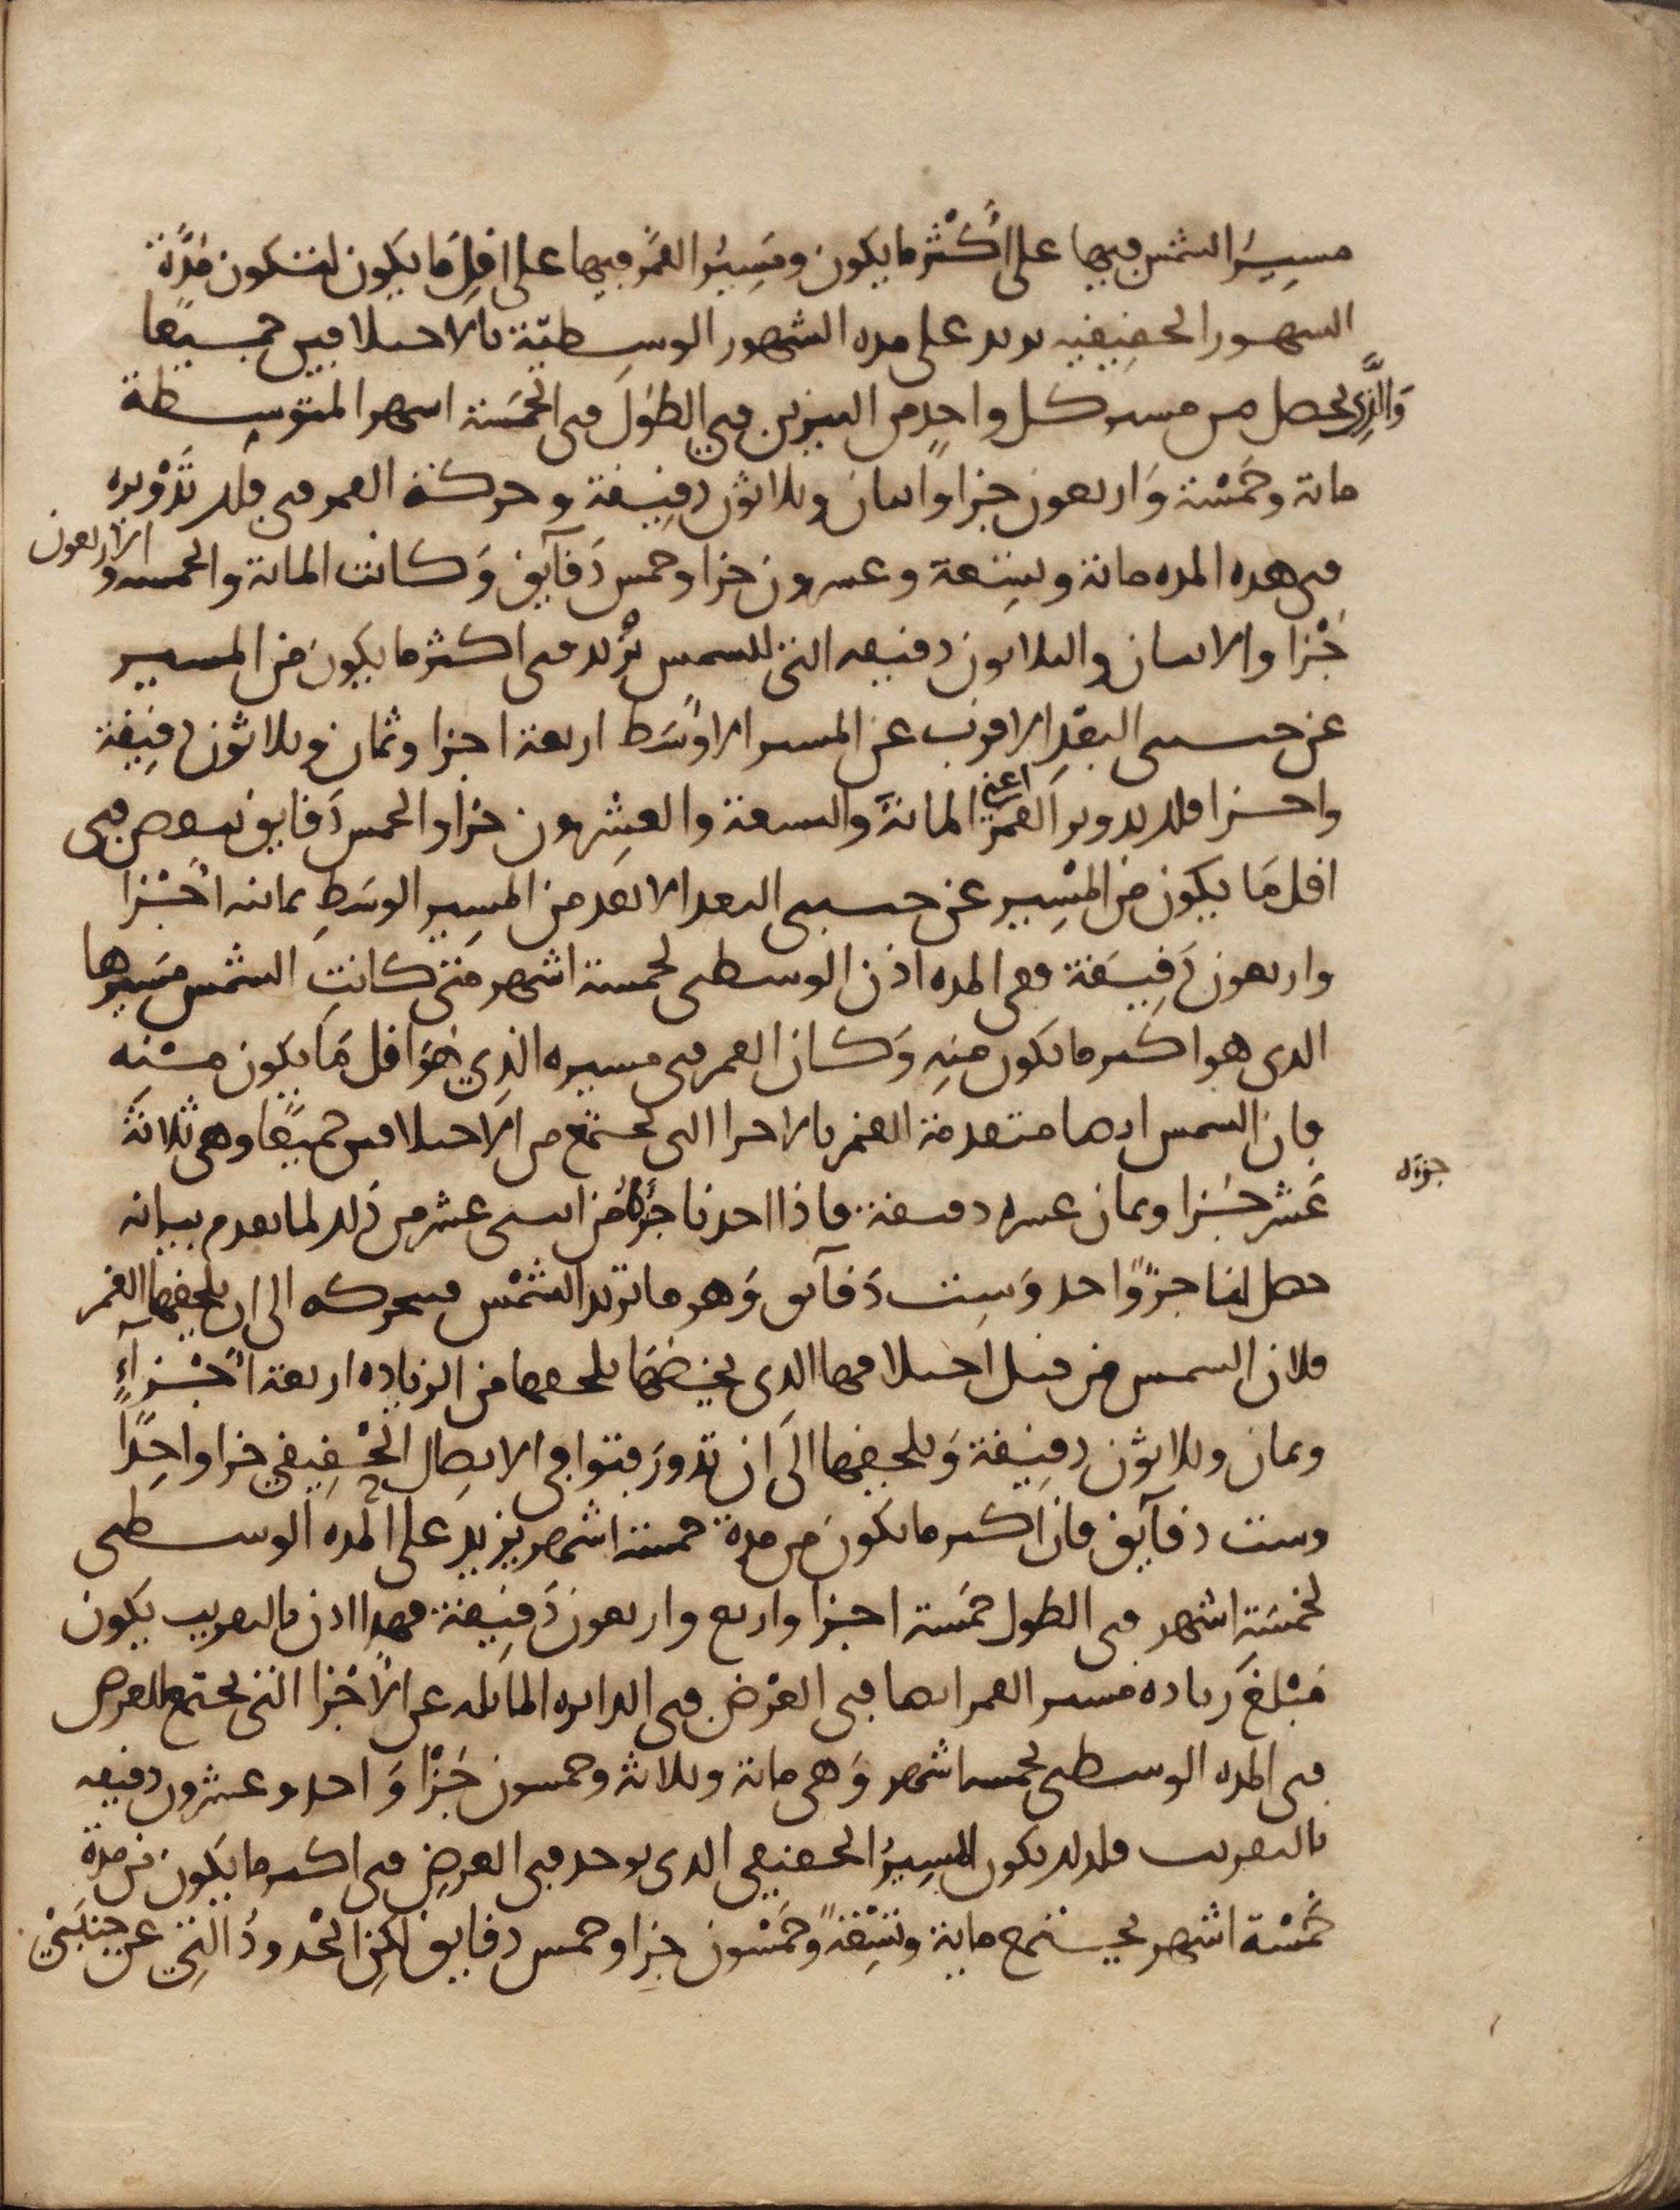 مسير الشمس فيها على أكثر ما يكون ومسير القمر فيها على اقل ما يكون لتكون مدّة
الشهور الحقيقيه تزيد على مده الشهور الوسطيّة بالاختلافين جميعا
والذي يحصل من مسير كل واحد من النيرين في الطول في الخمسة اشهر المتوسطة
مائة وخمسة واربعون جزا واثنان وثلاثون دقيقة وحركة القمر في فلك تدويره
في هذه المده مائة وتسعة وعشرون جزا وخمس دقآيق وكانت المائة والخمسه والاربعون
جزا والاثنان والثلاثون دقيقه التي للشمس تزيد في اكثر ما يكون من المسير
عن جنبتي البعد الاقرب عن المسير الاوسط اربعة اجزا وثمان وثلاثون دقيقة
واجزا فلك تدوير القمر اعني المائة والتسعة والعشرون جزا والخمس دقايق تنقص في
اقل ما يكون من المسير عن جنبتي البعد الابعد من المسير الوسط ثمانيه اجزا
واربعون دقيقة ففي المده اذن الوسطى لخمسة اشهر متى كانت الشمس مسيرها
الذى هو اكثر ما يكون منه وكان القمر في مسيره الذي هو اقل ما يكون منه
فان الشمس ابدا متقدمة القمر بالاجزا التي تجتمع من الاختلافين جميعا وهي ثلاثة
عشر جزا وثمان عشره دقيقة فاذا اخذنا جزءا من اثنى عشر من ذلك لما تقدم بيانه
جزاه
حصل لنا جزؤ واحد وست دقآيق وهو ما تزيد الشمس فى حركه الى ان يلحقها القمر
فلان الشمس من قبل اختلافها الذى يخصها يلحقها من الزياده اربعة اجزآء
وثمان وثلاثون دقيقة ويلحقها الى ان تدور فتوافي الاتصال الحقيقي جزا واحدا
وست دقآيق فان اكثر ما يكون من مدة خمسة اشهر يزيد على المده الوسطى
لخمسة اشهر في الطول خمسة اجزا واربع واربعون دقيقة فهذا اذن بالتقريب يكون
مبلغ زياده مسير القمر ايضا في العرض في الدايره المائله عن الاجزا التي تجتمع للعرض
في المده الوسطى لخمسه اشهر وهي مائة وثلاثة وخمسون جزا واحد وعشرون دقيقه
بالتقريب فلذلك يكون المسير الحقيقي الذى يوجد في العرض في اكثر ما يكون من مدة
خمسة اشهر يجتمع ماية وتسعة وخمسون جزا وخمس دقايق لكن الحدود التي عن جنبتي